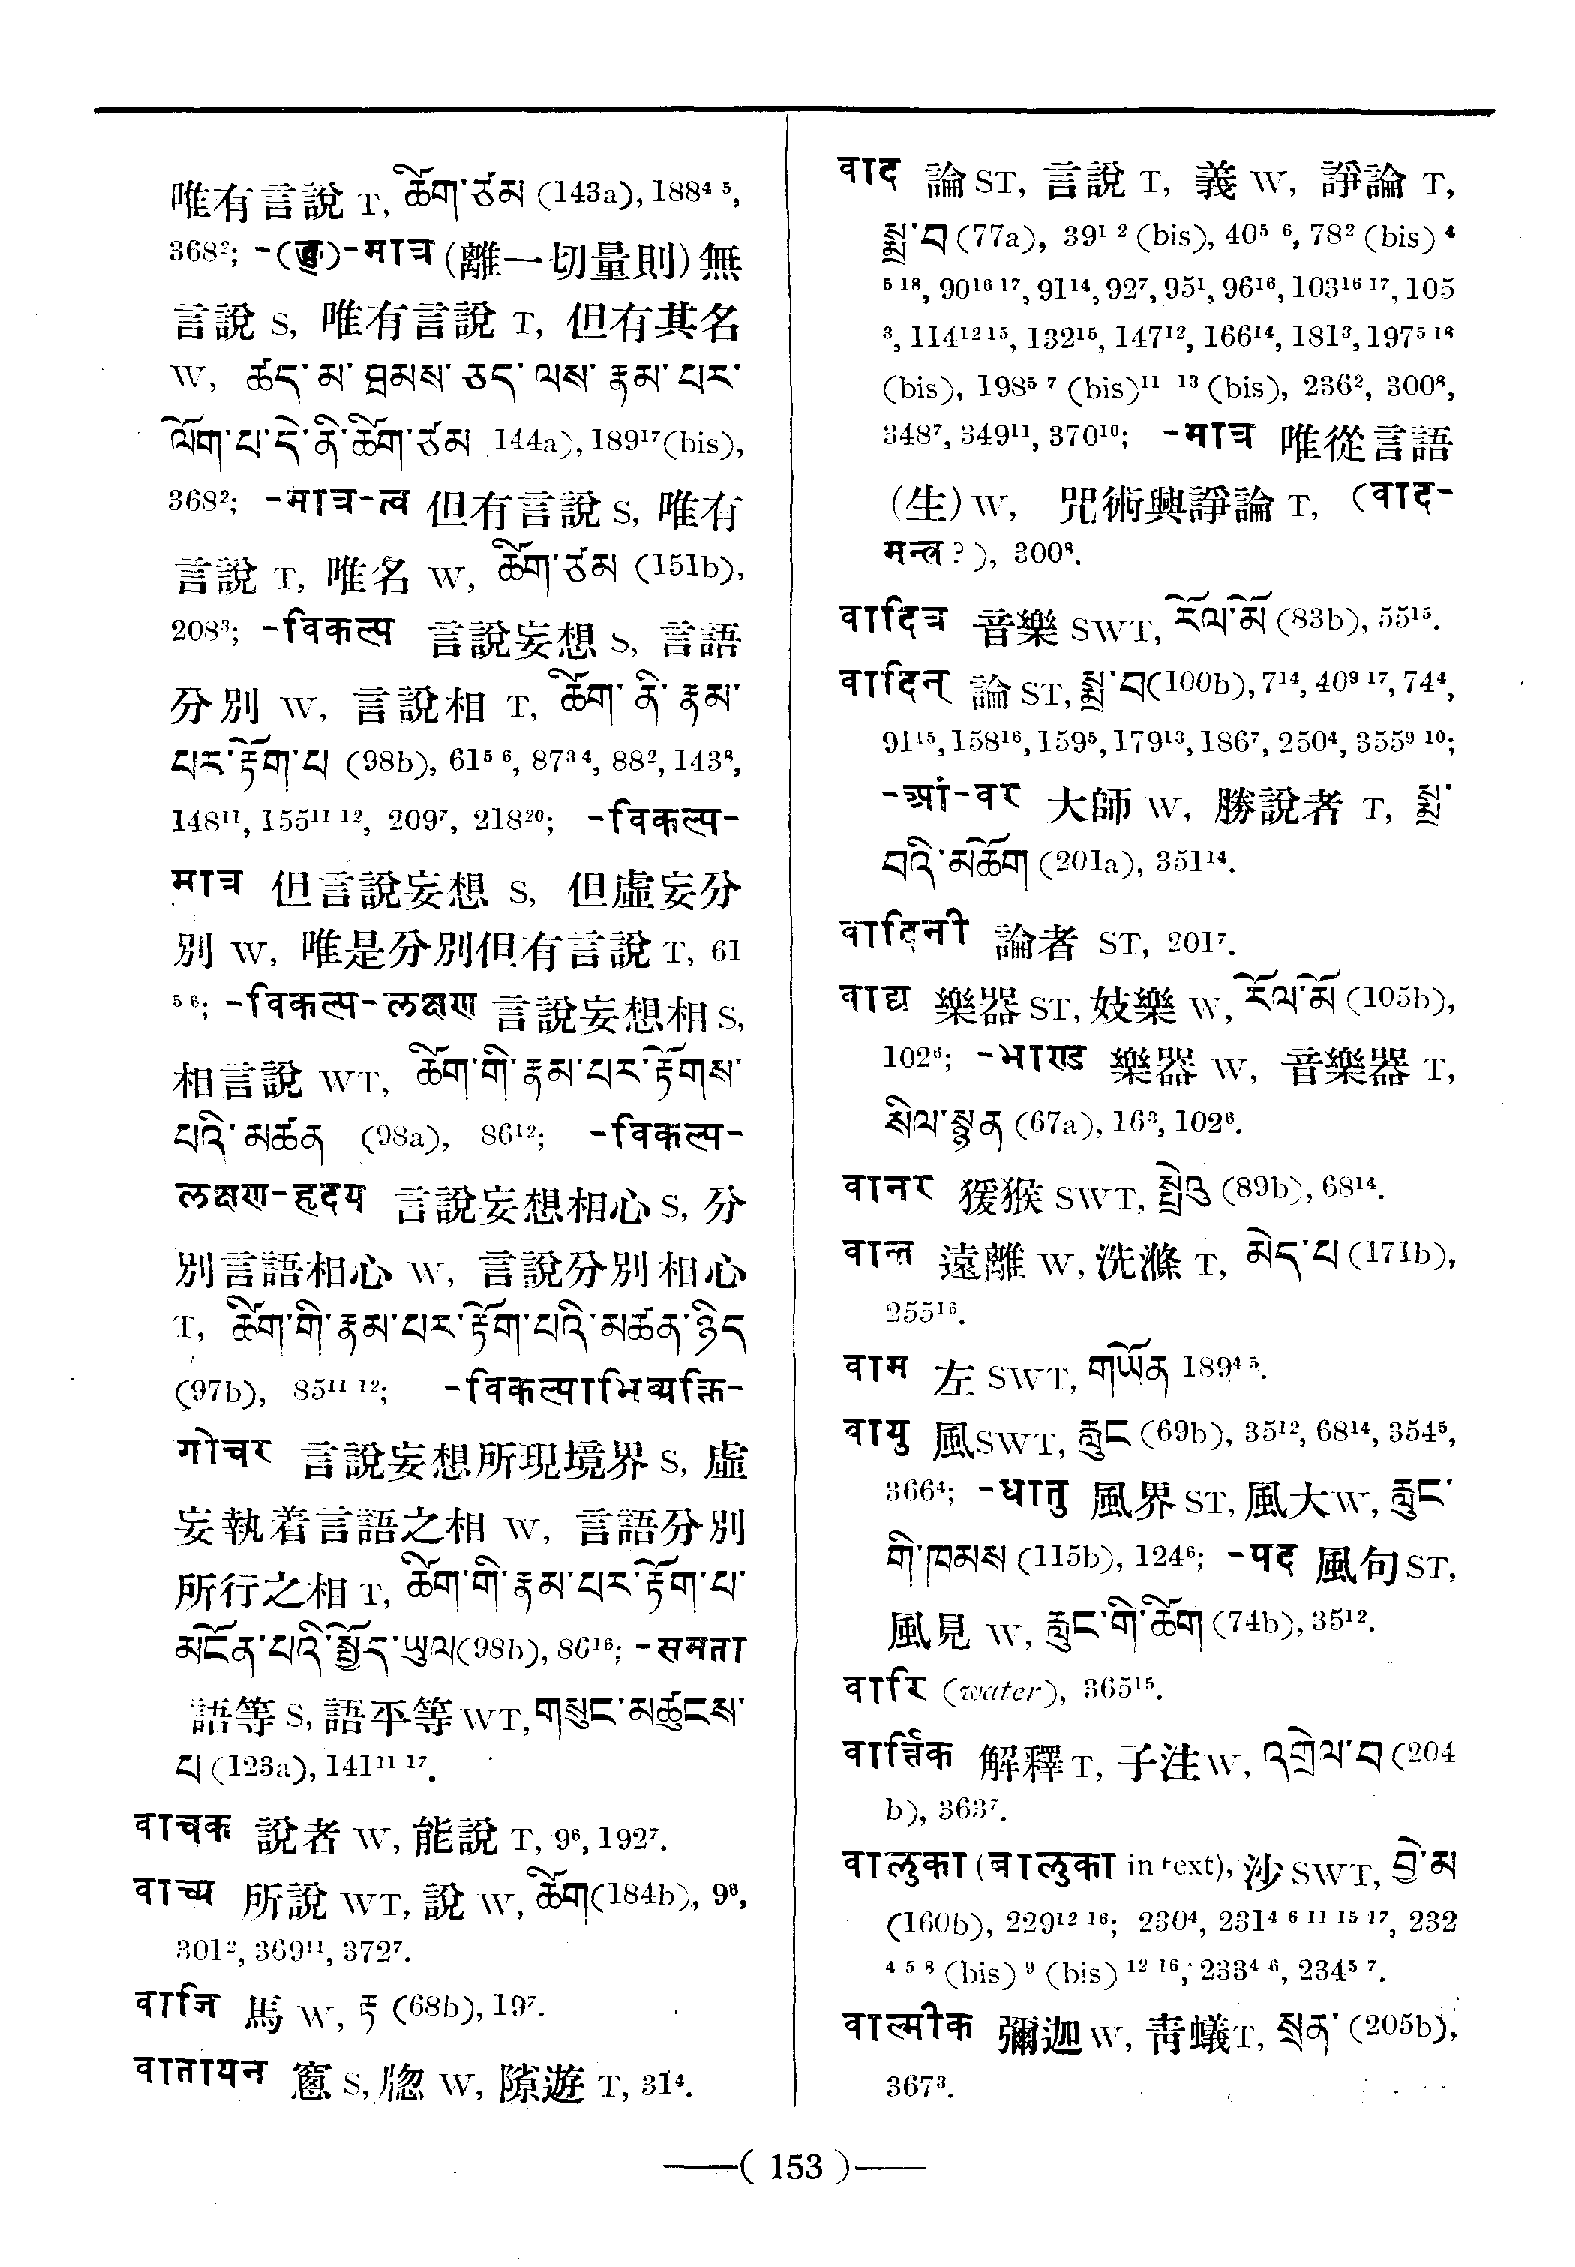 唯有言說 T, ཚིག་ཙམ (143a), 188⁴ ⁵,
368²; -(क)-मात्र (離一切量則) 無
言說 S, 唯有言說 T, 但有其名
W, ཚད་མ་ ཐམས་ ཅད་ ལས་ རྣམ་ པར་
ལོག་པ་དེ་ནི་ཚིག་ཙམ 144a), 189¹⁷(bis),
368²; -मात्र-त्व 但有言說 S, 唯有
言說 T, 唯名 W, ཚིག་ཙམ (151b),
208³; -विकल्प 言說妄想 S, 言語
分別 W, 言說相 T, ཚིག་ ནི་ རྣམ་
པར་རྟོག་པ (98b), 61⁵ ⁶, 87³ ⁴, 88², 143⁸,
148¹¹, 155¹¹ ¹², 209⁷, 218²⁰; -विकल्प-
मात्र 但言說妄想 S, 但虛妄分
別 W, 唯是分別但有言說 T, 61
⁵ ⁶; -विकल्प-लक्षण 言說妄想相 S,
相言說 WT, ཚིག་གི་རྣམ་པར་རྟོགས་
པའི་མཚན (98a), 86¹²; -विकल्प-
लक्षण-हृदय 言說妄想相心 S, 分
別言語相心 W, 言說分別相心
T, ཚིག་གི་རྣམ་པར་རྟོག་པའི་མཚན་ཉིད
(97b), 85¹¹ ¹²; -विकल्पाभिव्यक्ति-
गोचर 言說妄想所現境界 S, 虛
妄執着言語之相 W, 言語分別
所行之相 T, ཚིག་གི་རྣམ་པར་རྟོག་པ་
མངོན་པའི་སྤྱོད་ཡུལ(98b), 86¹⁶; -समता
語等 S, 語平等 WT, གསུང་མཚུངས་
པ (123a), 141¹¹ ¹⁷.
वाचक 說者 W, 能說 T, 9⁶, 192⁷.
वाच्य 所說 WT, 說 W, ཚིག(184b), 9⁸,
301², 369¹¹, 372⁷.
वाजि 馬 W, རྟ (68b), 19⁷.
वातायन 窻 S, 牕 W, 隙遊 T, 31⁴.
वाद 論 ST, 言說 T, 義 W, 諍論 T,
སྨྲ་བ (77a), 39¹ ² (bis), 40⁵ ⁶, 78² (bis) ⁴
⁵ ¹⁸, 90¹⁶ ¹⁷, 91¹⁴, 92⁷, 95¹, 96¹⁶, 103¹⁶ ¹⁷, 105
³, 114¹² ¹⁵, 132¹⁵, 147¹², 166¹⁴, 181³, 197⁵ ¹⁸
(bis), 198⁵ ⁷ (bis)¹¹ ¹³ (bis), 236², 300⁸,
348⁷, 349¹¹, 370¹⁰; -मात्र 唯從言語
(生) W, 咒術與諍論 T, (वाद-
मन्त्र ?), 300⁸.
वादित्र 音樂 SWT, རོལ་མོ (83b), 55¹⁵.
वादिन् 論 ST, སྨྲ་བ(100b), 7¹⁴, 40⁹ ¹⁷, 74⁴,
91¹⁵, 158¹⁶, 159⁵, 179¹³, 186⁷, 250⁴, 355⁹ ¹⁰;
-आं-वर 大師 W, 勝說者 T, སྨྲ་
བའི་མཆོག (201a), 351¹⁴.
वादिनी 論者 ST, 201⁷.
वाद्य 樂器 ST, 妓樂 W, རོལ་མོ (105b),
102⁶; -भाण्ड 樂器 W, 音樂器 T,
སིལ་སྙན (67a), 16³, 102⁶.
वानर 猨猴 SWT, སྤྲེའུ (89b), 68¹⁴.
वान्त 遠離 W, 洗滌 T, མེད་པ (171b),
255¹⁶.
वाम 左 SWT, གཡོན 189⁴ ⁵.
वायु 風 SWT, རླུང (69b), 35¹², 68¹⁴, 354⁵,
366⁴; -धातु 風界 ST, 風大 W, རླུང་
གི་ཁམས (115b), 124⁶; -पद 風句 ST,
風見 W, རླུང་གི་ཚིག (74b), 35¹².
वारि (water), 365¹⁵.
वार्त्तिक 解釋 T, 子注 W, འགྲེལ་བ (204
b), 363⁷.
वालुका (बालुका in text), 沙 SWT, བྱེ་མ
(160b), 229¹² ¹⁶; 230⁴, 231⁴ ⁶ ¹¹ ¹⁵ ¹⁷, 232
⁴ ⁵ ⁸ (bis) ⁹ (bis) ¹² ¹⁶, 233⁴ ⁶, 234⁵ ⁷.
वाल्मीक 彌迦 W, 靑蟻 T, སྲན་ (205b),
367³.
—( 153 )—